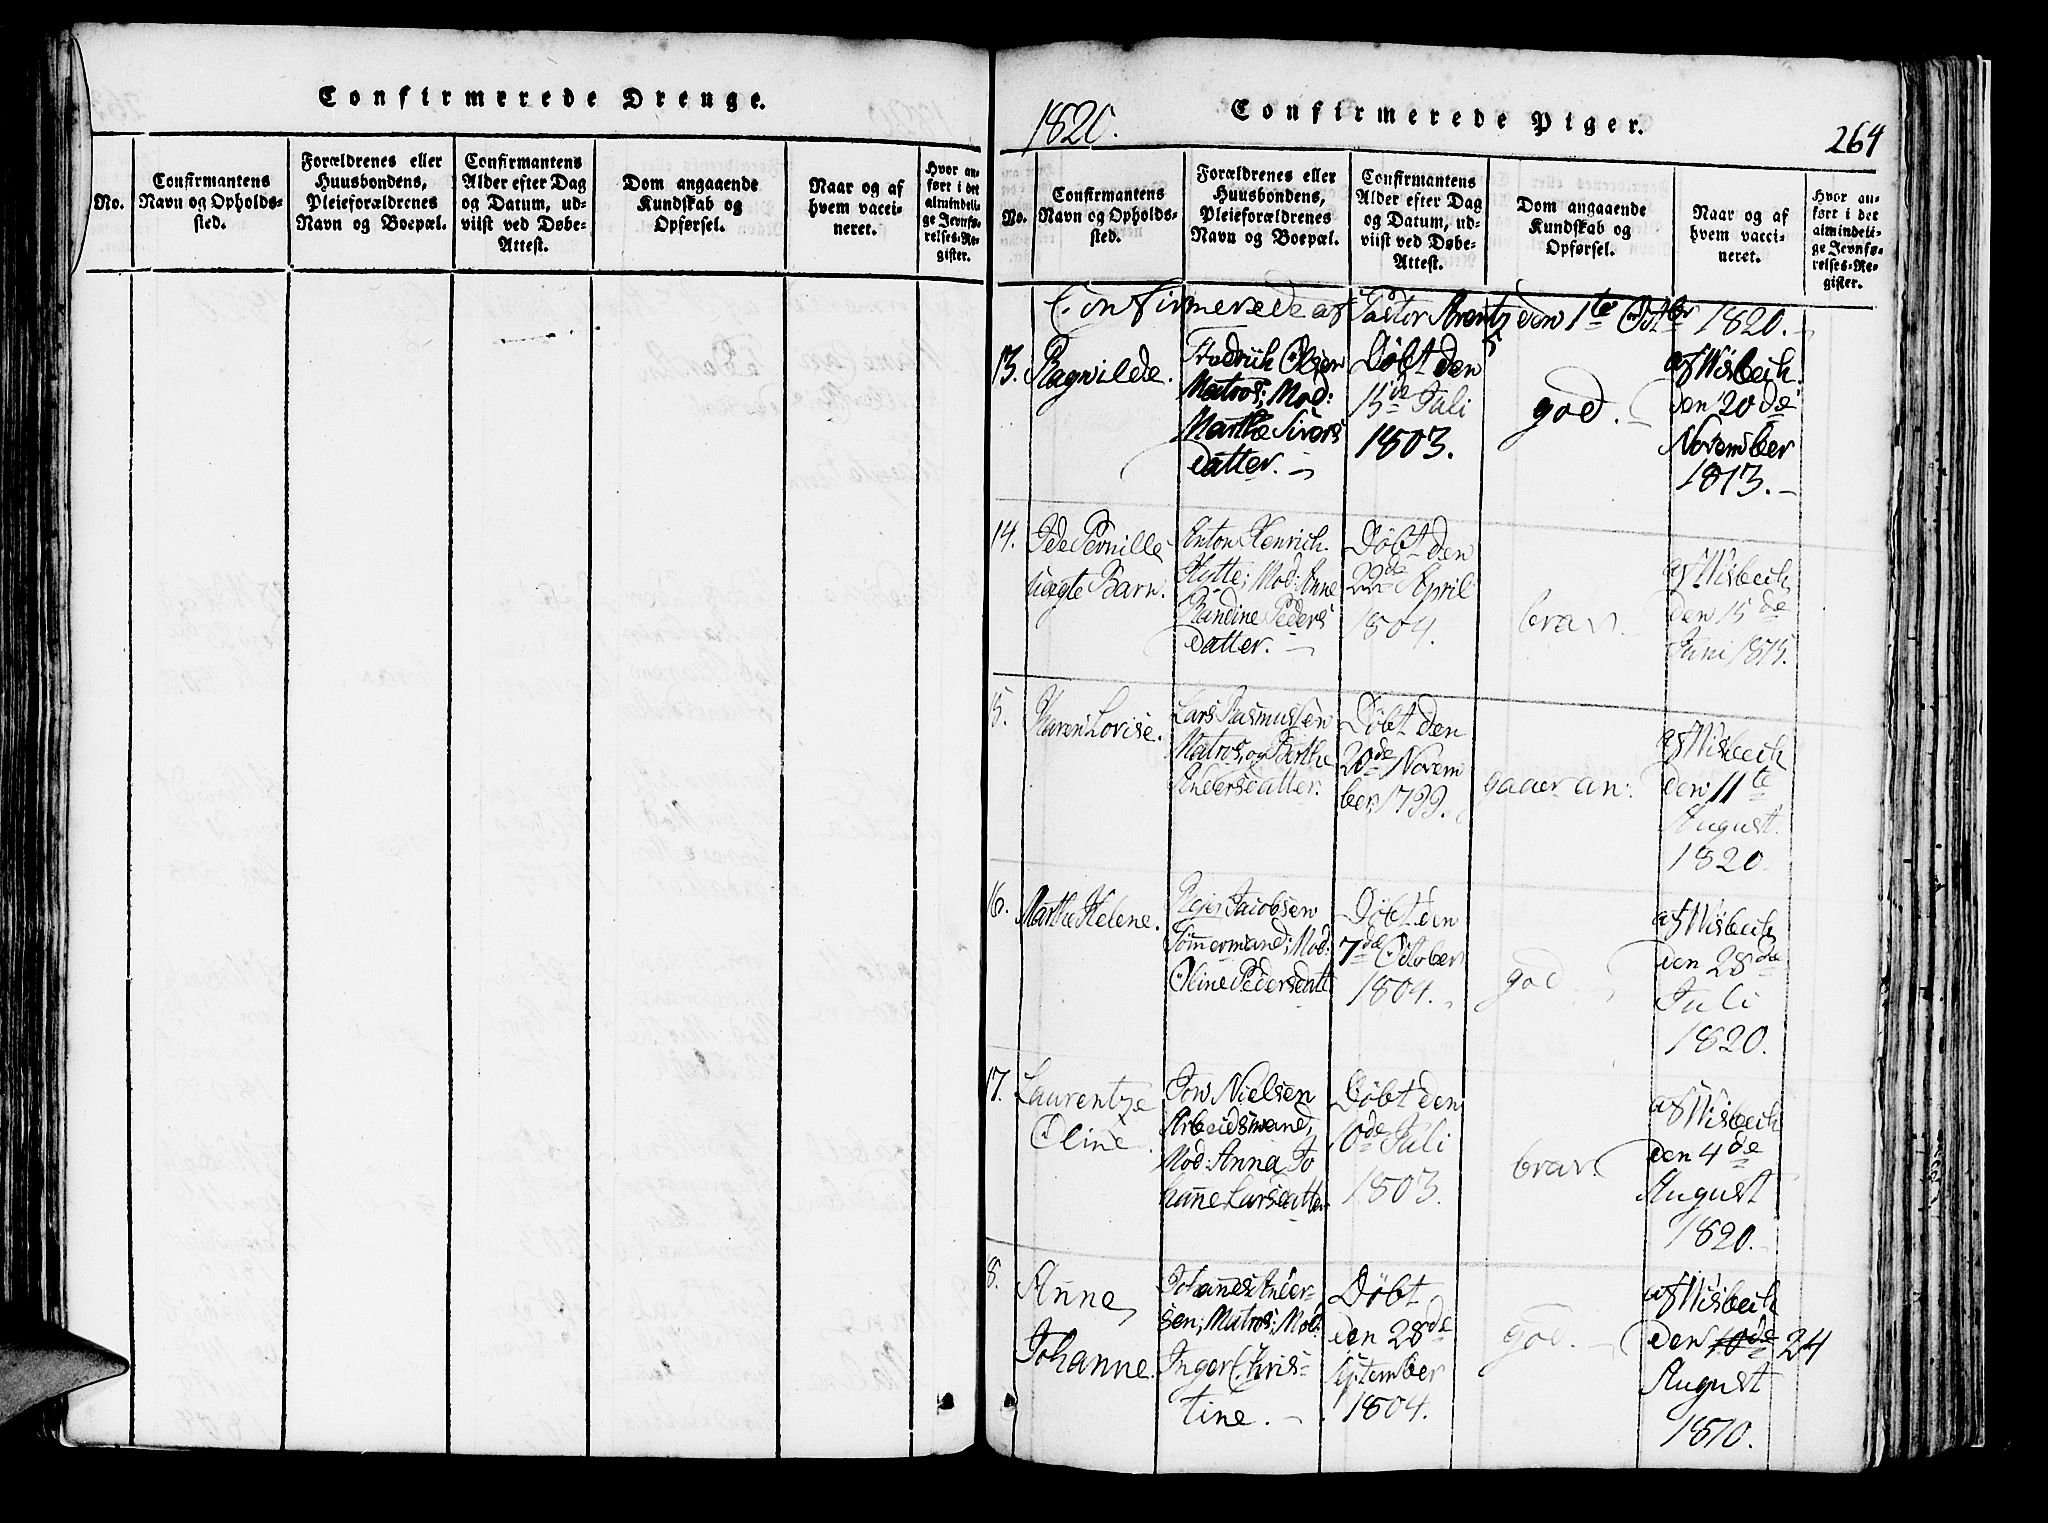 Confirmerede Drenge.
No.
Confirmantens
Navn og Opholds-
sted.
Forældrenes eller
Huusbondens,
Pleieforældrenes
Navn og Boepæl.
Confirmantens
Alder efter Dag
og Datum, ud-
viist ved Døbe-
Attest.
Dom angaaende
Kundskab og
Opførsel.
Naar og af
hvem vacci-
neret.
Hvor an-
ført i det
almindeli-
ge Jevnfø-
relses-Re-
gister.
1820.
Confirmerede Piger.
264
No.
Confirmantens
Navn og Opholds-
sted.
Forældrenes eller
Huusbondens,
Pleieforældrenes
Navn og Boepæl.
Confirmantens
Alder efter Dag
og Datum, ud-
viist ved Døbe-
Attest.
Dom angaaende
Kundskab og
Opførsel.
Naar og af
hvem vacci-
neret.
Hvor an-
ført i det
almindeli-
ge Jevnfø-
relses-Re-
gister.
Confirmerede af Pastor Arentz den 1te Octbr 1820.
13.
Ragnilde.
Fredrich Olsen
Matros; Mod:
Marthe Sivers
datter.
Døbt den
15de Juli
1803.
god.
af Wisbech
den 20de
November
1813.
14.
Ide Pernille
uægte Barn.
Anton Henrich
Hytte; Mod: Anne
Randine Peders
datter.
Døbt den
22de April
1804.
brav.
af Wisbech
den 15de
Juni 1815.
15.
Karen Lovise.
Lars Rasmussen
Matros, og Berthe
Andersdatter.
Døbt den
20de Novem
ber 1799.
gaaer an.
af Wisbech
den 11te
August
1820.
16.
Marthe Helene.
Reier Jacobsen
Tømmermand; Mod:
Oline Pedersdatt
Døbt den
7de October
1804.
god.
af Wisbech
den 28de
Juli
1820.
17.
Laurentze
Oline.
Jon Nielsen
Arbeidsmand,
Mod: Anna Jo
hanne Larsdatter
Døbt den
10de Juli
1803.
brav.
af Wisbech
den 4de
August
1820.
8.
Anne
Johanne.
Johannes Ander-
sen; Matros; Mod:
Inger Chris-
tine.
Døbt
den 28de
September
1804.
god.
af Wisbech
den 10de 24
August
1810.